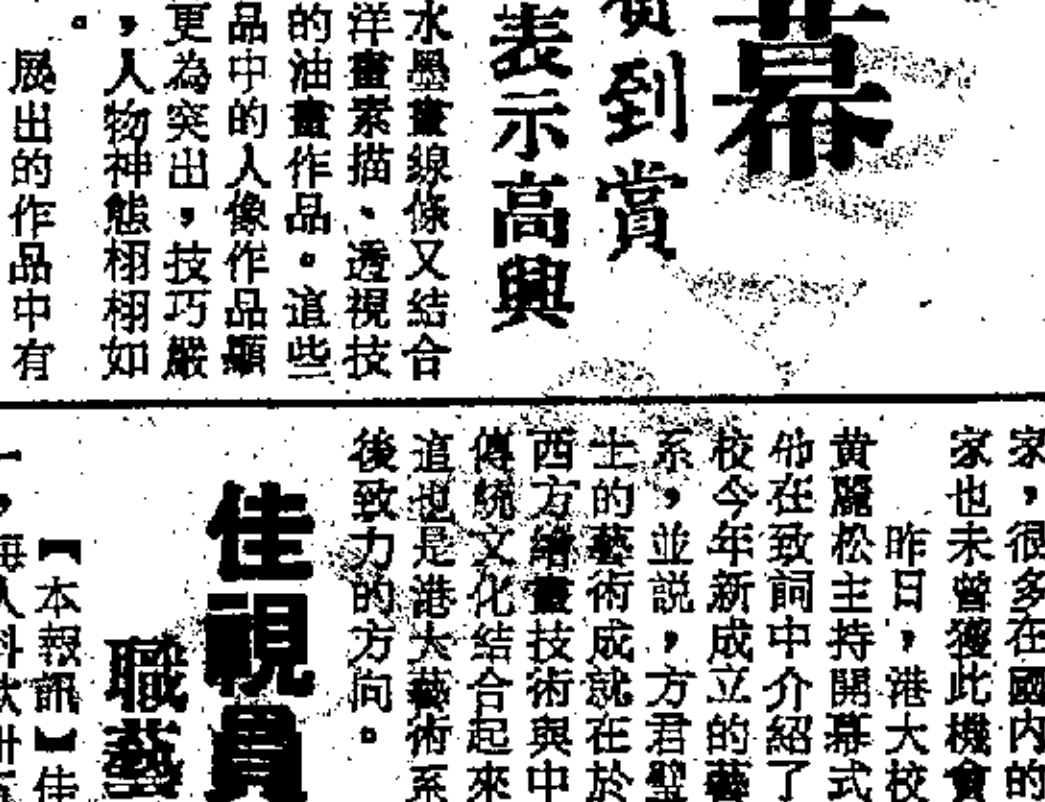 幕
到賞
表示高興
水墨畫線條又結合
洋畫素描、透視技
的油畫作品。這些
品中的人像作品顯
更為突出,技巧嚴
,人物神態栩栩如
。
展出的作品中有
家,很多在國內的
家也未曾獲此機會
昨日,港大校
黄麗松主持開幕式
他在致詞中介紹了
校今年新成立的藝
系,並説,方君璧
士的藝術成就在於
西方繪畫技術與中
傳統文化結合起來
這也是港大藝術系
後致力的方向。
佳視員
職藝
【本報訊】佳